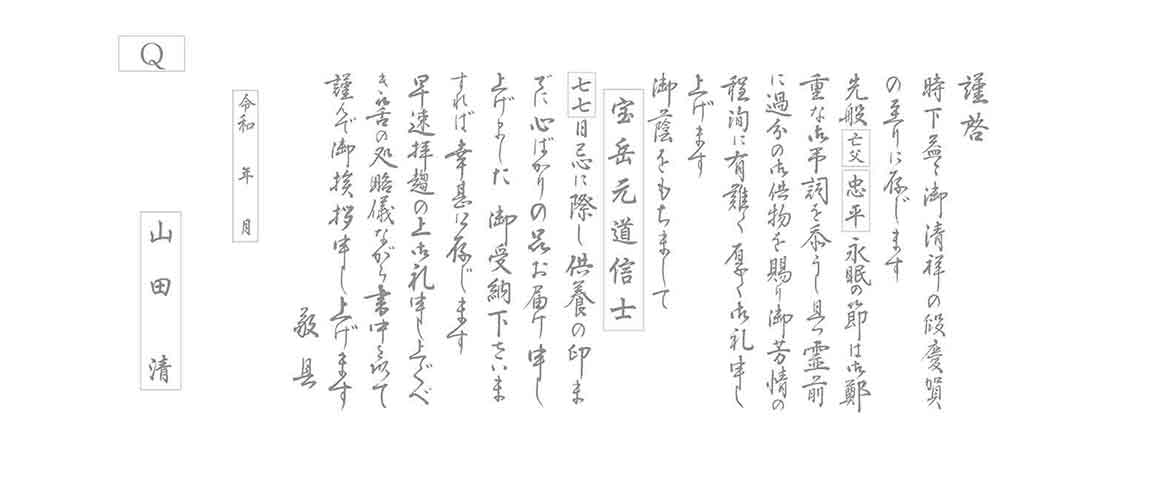 謹啓
時下益々御清祥の段慶賀
の至りに存じます
先般亡父忠平永眠の節は御鄭
重な御弔詞を忝うし且つ霊前
に過分の御供物を賜り御芳情の
程洵に有難く厚く御礼申し
上げます
御蔭をもちまして
宝岳元道信士
七七日忌に際し供養の印ま
でに心ばかりの品お届け申し
上げました 御受納下さいま
すれば幸甚に存じます
早速拝趨の上御礼申し上ぐべ
き筈の処略儀ながら書中を以て
謹んで御挨拶申し上げます
敬具
令和 年 月
山田 清
Q